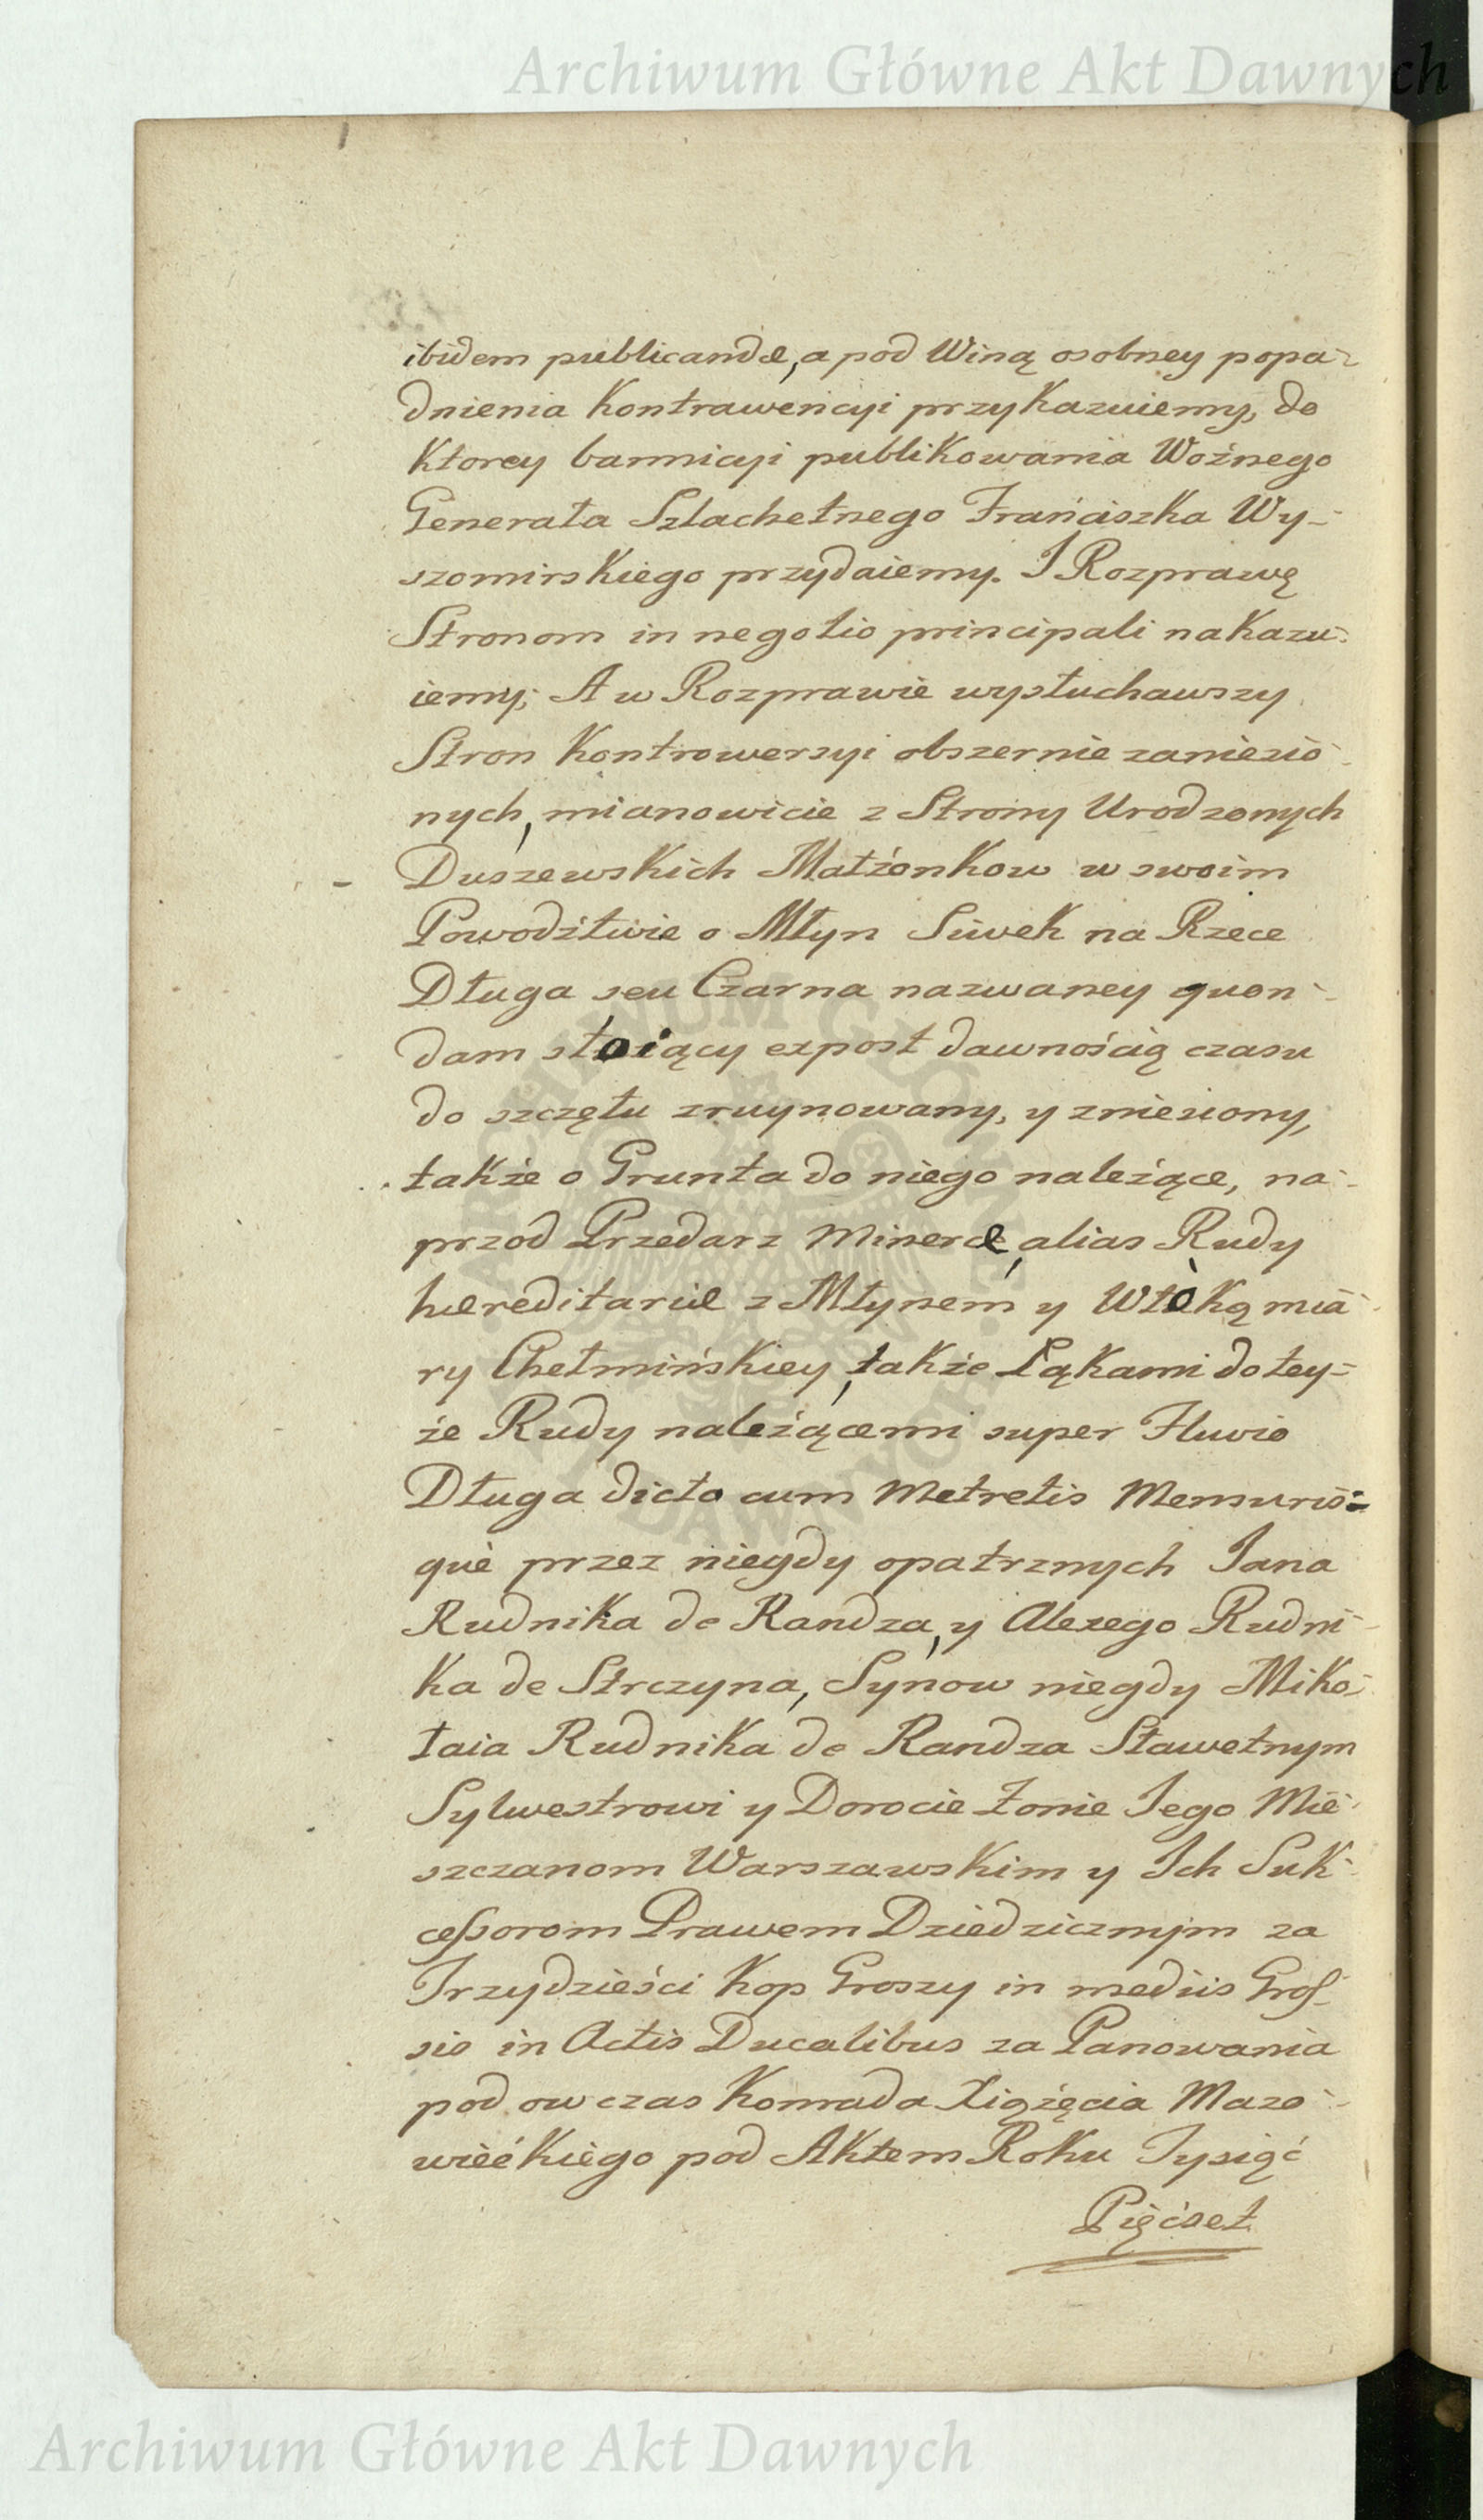 Archiwum Główne Akt Dawnych
ibidem publicandæ, a pod Winą osobney popa-
dnienia Kontrawencyi przykazuiemy, do
Ktorey bannicyi publikowania Woźnego
Generała Szlachetnego Franciszka Wy-
szomirskiego przydaiemy. I Rozprawę
Stronom in negotio principali nakazu-
iemy; A w Rozprawie wysłuchawszy
Stron Kontrowersyi obszernie zaniesio-
nych, mianowicie z Strony Urodzonych
Duszewskich Małżonkow w swoim
Powodztwie o Młyn Siwek na Rzece
Długa seu Czarna nazwaney quon-
dam stoiący expost dawnością czasu
do szczętu zruynowany, y zniesiony,
także o Grunta do niego należące, na-
przod Przedarz Mineræ, alias Rudy
hæreditariæ z Młynem y Włoką mia-
ry Chełmińskiey, także Łąkami do tey-
że Rudy należącemi super Fluvio
Długa dicto cum Metretis Mensuris-
que przez niegdy opatrznych Jana
Rudnika de Randza, y Alexego Rudni-
ka de Strczyna, Synow niegdy Miko-
łaia Rudnika de Randza Sławetnym
Sylwestrowi y Dorocie Żonie Jego Mie-
szczanom Warszawskim y Ich Suk-
cessorom Prawem Dziedzicznym za
Trzydzieści Kop Groszy in mediis Gros-
sis in Actis Ducalibus za Panowania
pod ow czas Konrada Xiążęcia Mazo-
wieckiego pod Aktem Roku Tysiąc
Pięćset
ARCHIWUM GŁÓWNE AKT DAWNYCH
Archiwum Główne Akt Dawnych